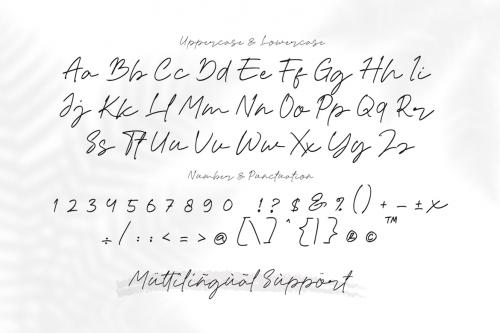 Uppercase & Lowercase
Aa Bb Cc Dd Ee Ff Gg Hh Ii
Jj Kk Ll Mm Nn Oo Pp Qq Rr
Ss Tt Uu Vv Ww Xx Yy Zz
Number & Punctuation
1 2 3 4 5 6 7 8 9 0 ! ? $ & % ( ) + – ± x
÷ / : : < = > @ [ \ ] ^ { | } ® © ™
Müttilingùäl Sùppört